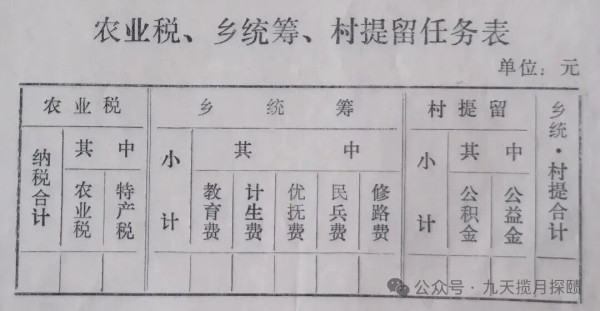 农业税、乡统筹、村提留任务表
单位：元
农业税
乡统筹
村提留
乡统·村提合计
纳税合计
其中
农业税
特产税
小计
其中
教育费
计生费
优抚费
民兵费
修路费
小计
其中
公积金
公益金
公众号·九天揽月探赜